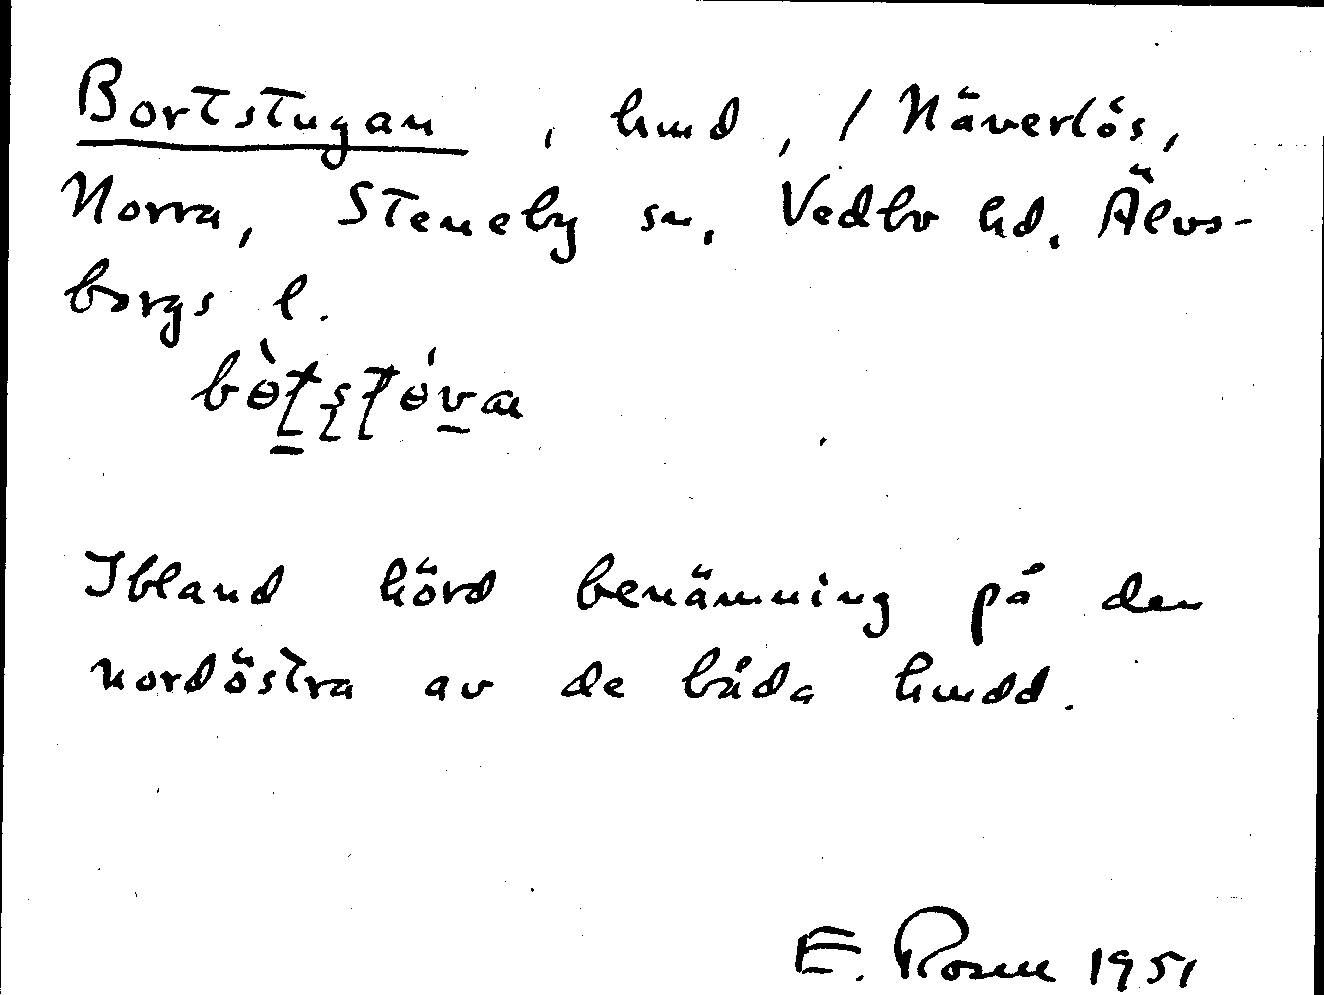 Bortstugan, hmd, / Näverlös,
Norra, Steneby sn, Vedbo hd. Älvs-
borgs l.
Ibland hörd benämning på den
nordöstra av de båda hmdd.
E. Rosen 1951